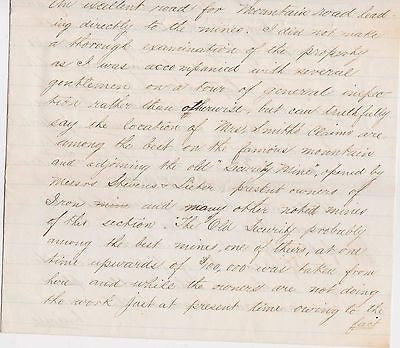 An excellent road for Mountain road lead-
ing directly to the mines. I did not make
a thorough examination of the property
as I was accompanied with several
gentlemen on a tour of general inspec
tion rather than otherwise, but can truthfully
say the location of Mrs Smith's claims are
among the best on the famous mountain
and adjoining the old "Security Mine", opened by
Messrs Stevens & Leiter, present owners of
Iron mine and many other noted mines
of this section. The Old Security probably
among the best mines, one of theirs, at one
time upwards of 900,000 was taken from
here and while the owners are not doing
the work just at present time owing to the
fact